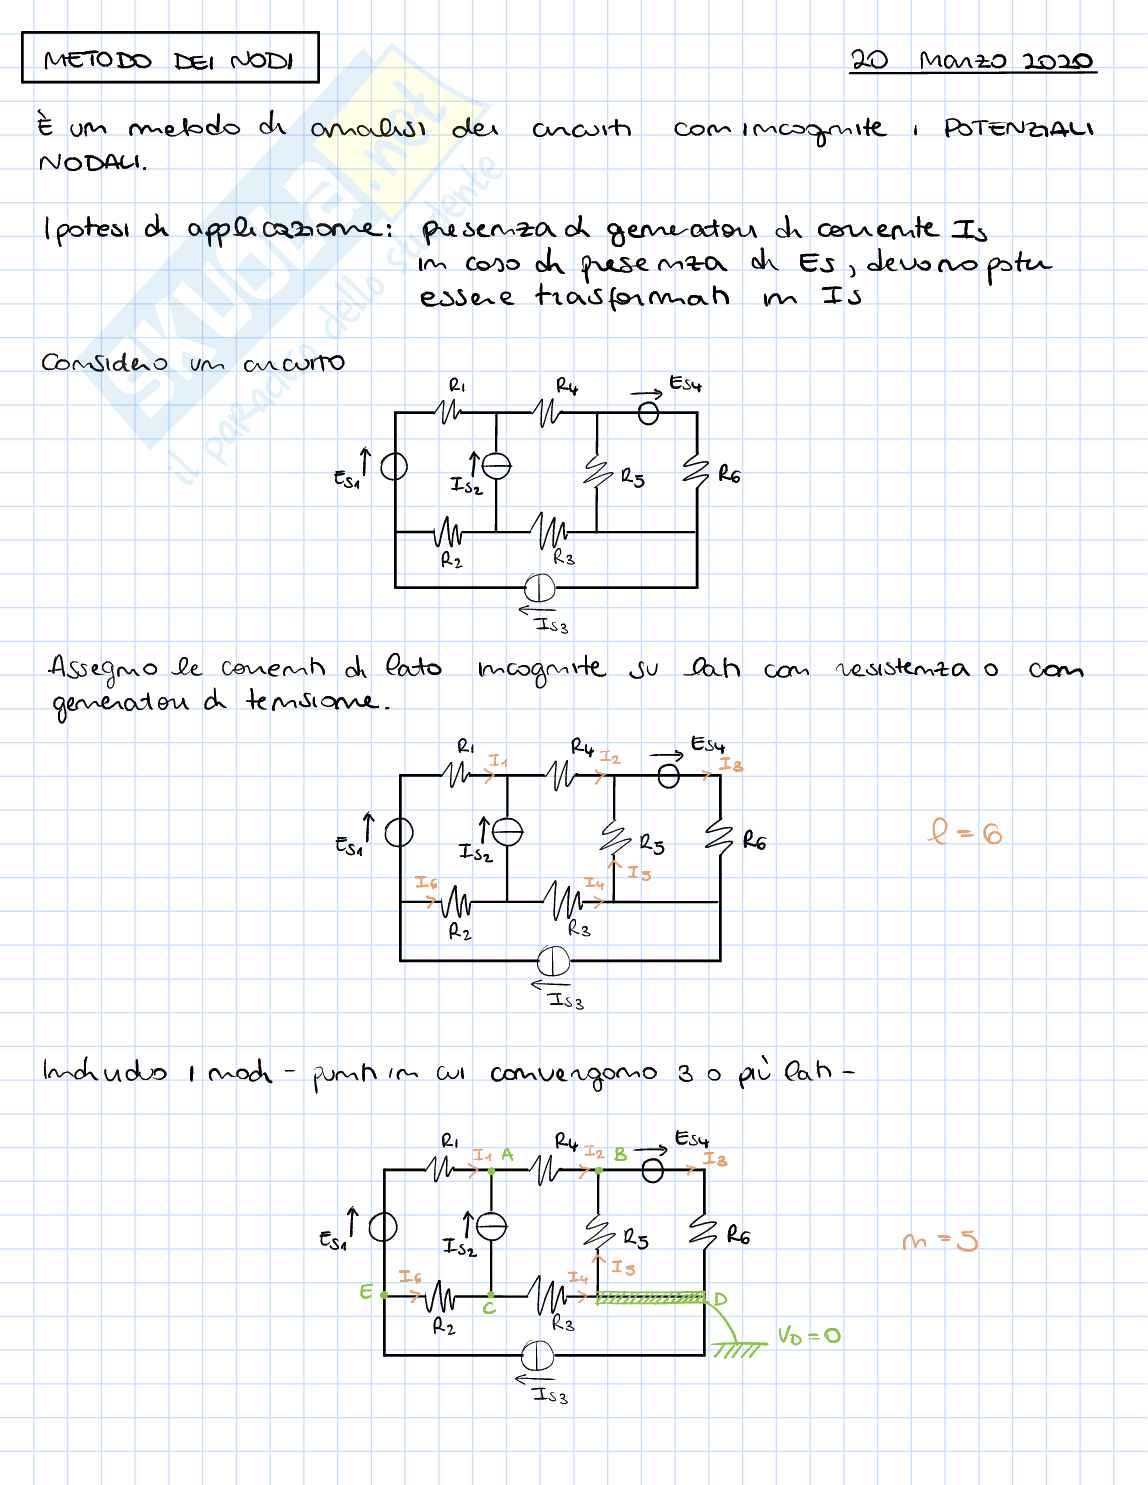 METODO DEI NODI
20 Marzo 2020
È um metodo di analisi dei circuiti com incognite i POTENZIALI
NODALI.
Ipotesi di applicazione: presenza di generatori di corrente Is
in caso di presenza di Es, devono poter
essere trasformati in Is
Considero un circuito
R1 R4 Es4
Es1 Is2 R5 R6
R2 R3
Is3
Assegno le correnti di lato incognite su lati con resistenza o con
generatori di tensione.
R1 I1 R4 I2 Es4 I3
Es1 Is2 R5 R6 l = 6
I6 I4 I5
R2 R3
Is3
Individuo i nodi - punti in cui convergono 3 o più lati -
R1 I1 A R4 I2 B Es4 I3
Es1 Is2 R5 R6 m = 5
E I6 I4 I5
R2 C R3 D
VD = 0
Is3
SKUOLA.net
il paradiso dello studente